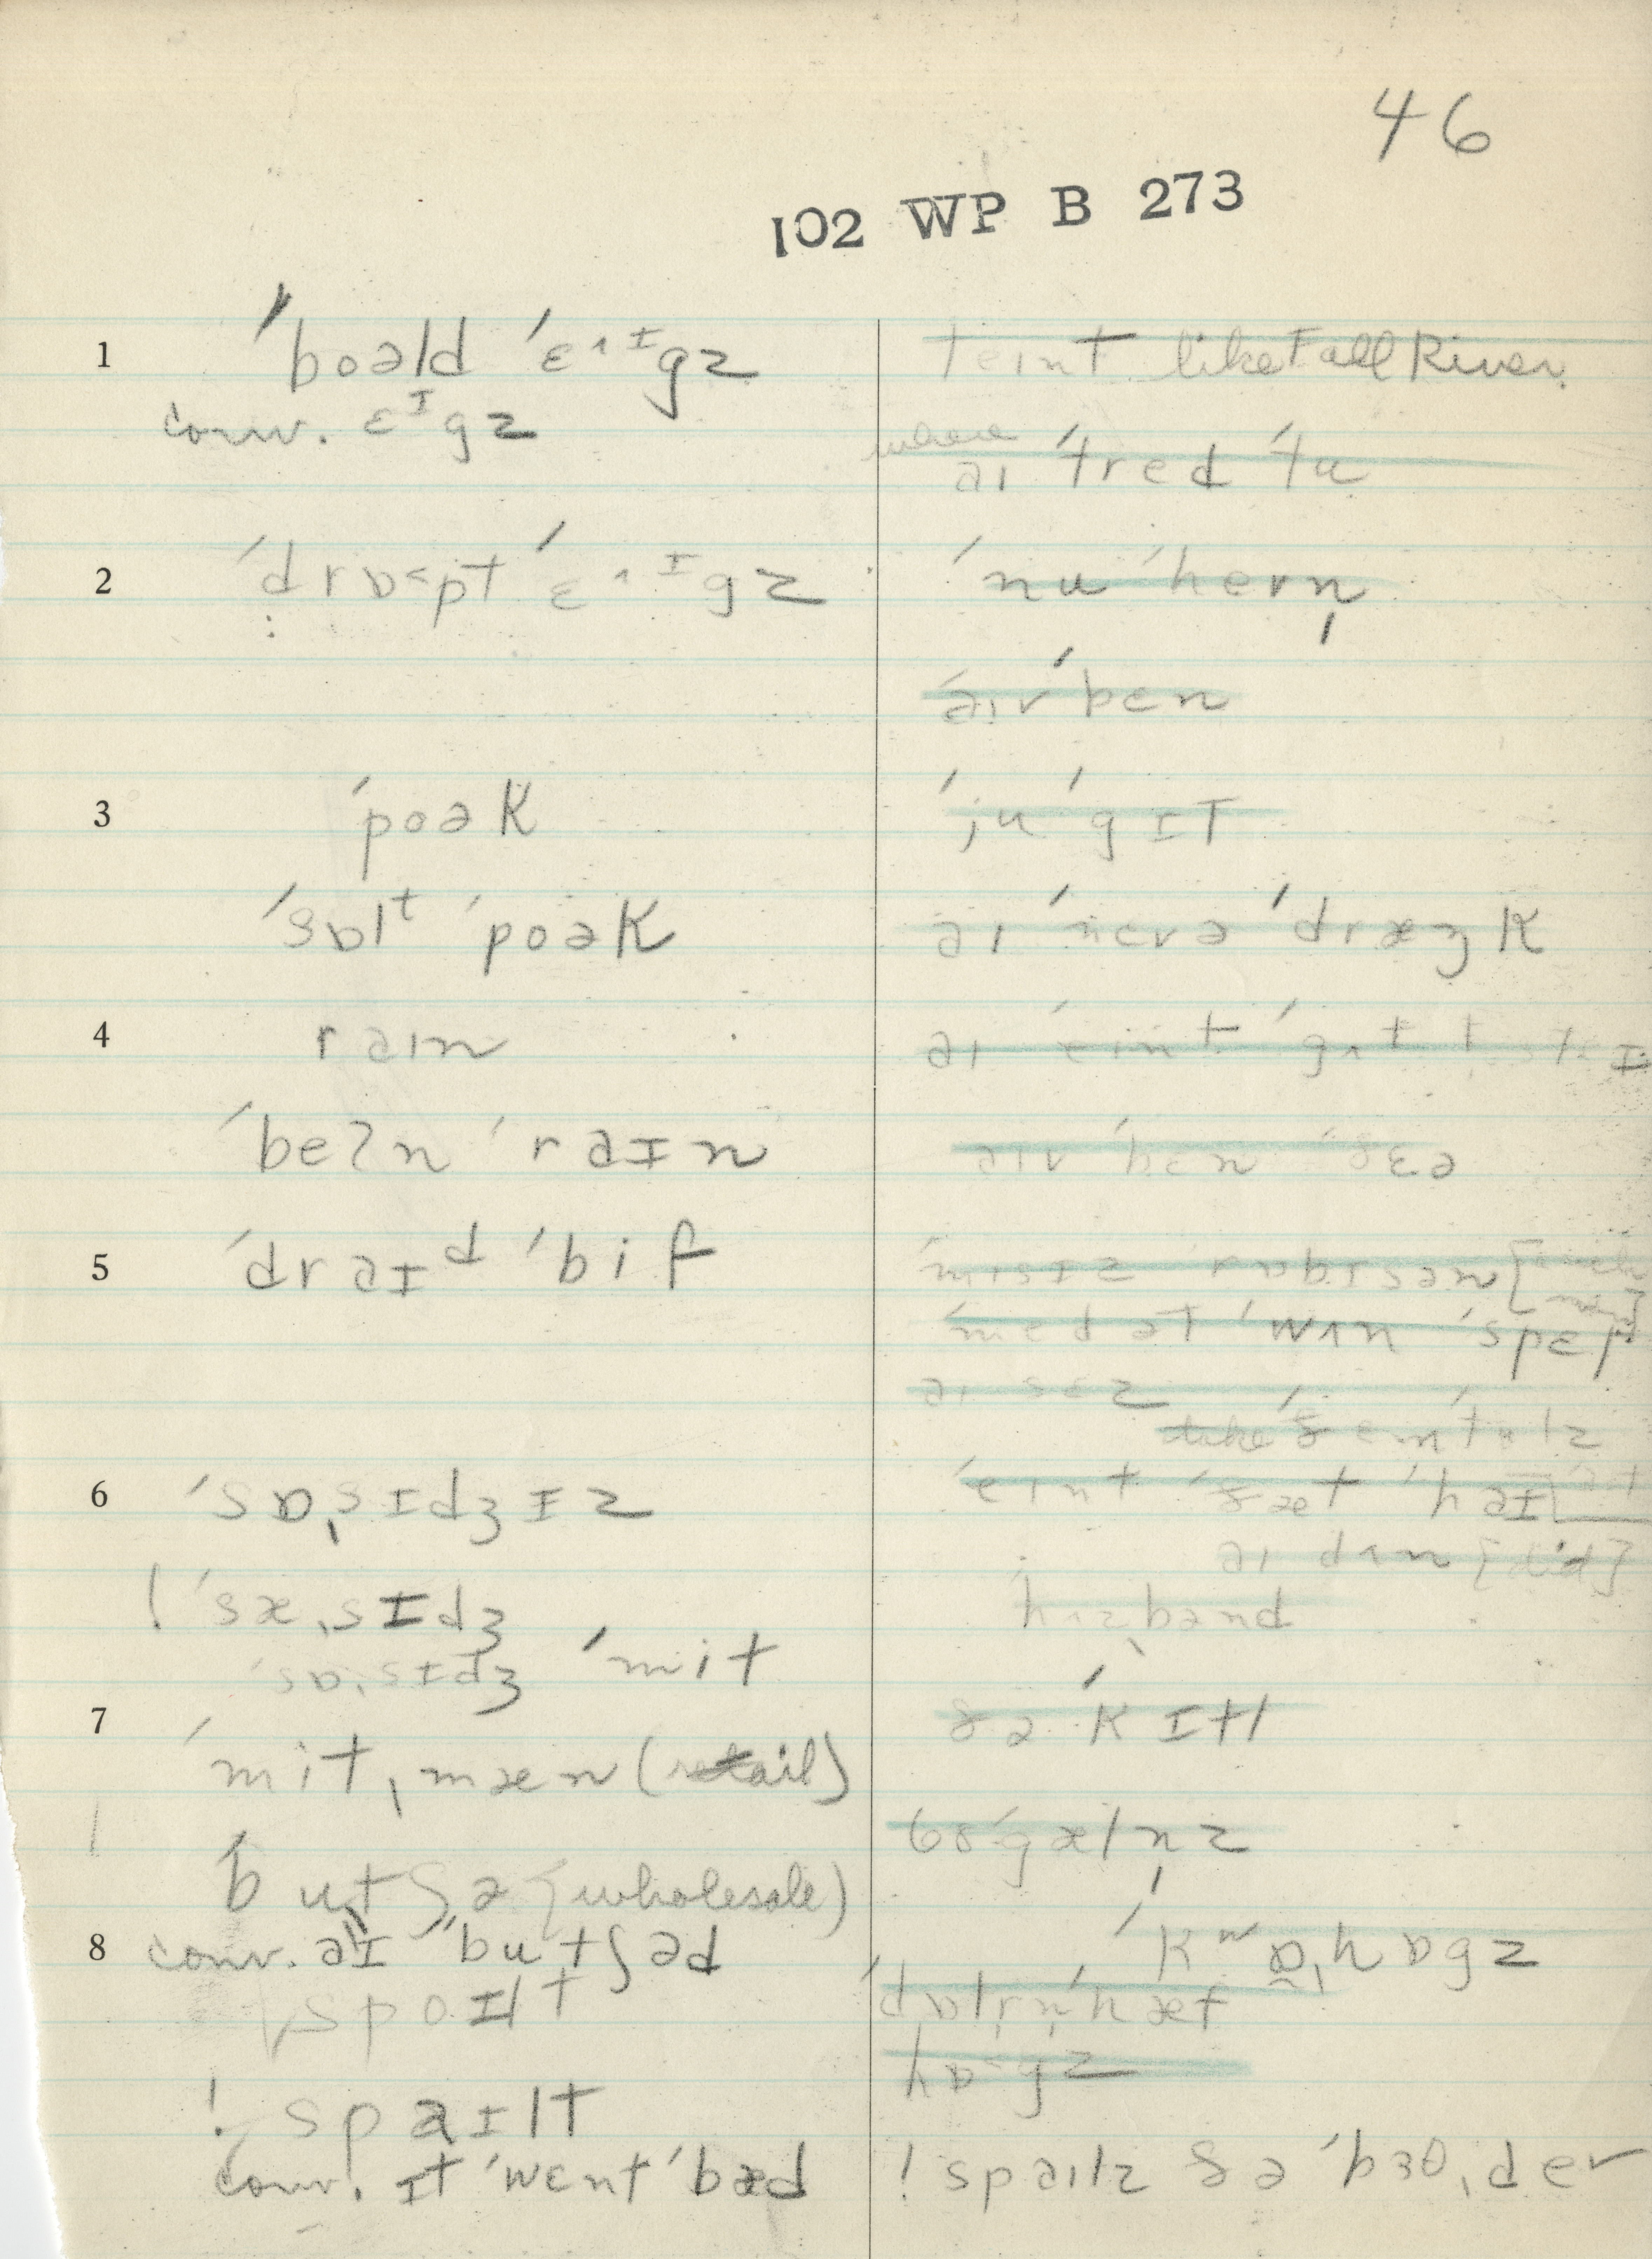 46
102 WP B 273
1 ˈboəld ˈɛ˄ᶦgz
conv. ɛᶦgz
2 ˈdrɒ˂pt ˈɛ˄ᶦgz
3 ˈpoək
ˈsɒlᵗ ˈpoək
4 rəɪn
ˈbeʔn ˈrəɪn
5 ˈdrəɪᵈ ˈbif
6 ˈsɒˌsɪdʒɪz
! ˈsæˌsɪdʒ
ˈsɒˌsɪdʒ ˈmit
7 ˈmitˌmæn (retail)
ˈbutʃə (wholesale)
8 conv. əɪ ˈbutʃəd
spoɪlt
! spəɪlt
conv. ɪt ˈwɛnt ˈbæd
teint like Fall River
where
əɪ ˈtred ˈtu
ˈnu ˈhern̩
ˈəɪv ˈbɛn
ˈju ˈgɪt
əɪ ˈnɛvə ˈdræŋk
əɪv ˈbɛn ˈðɛə
əɪ sɛz
ˈeint ˈðæt
əɪ dʌn [did]
hʌzˌbənd
ðə ˈkɪtl
68 ˈgæln̩z
ˈkʷɒˌhɒgz
hɒgz
! spəɪlz ðə ˈbɜθˌde